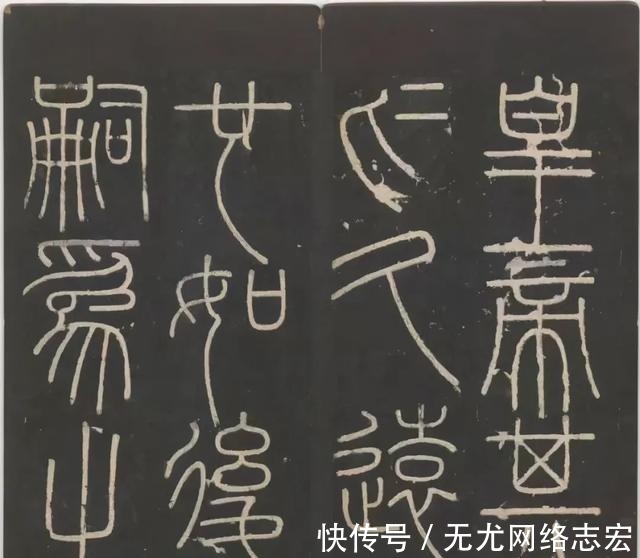 皇帝其
於久遠
也如後
嗣爲之
快传号 / 无尤网络志宏